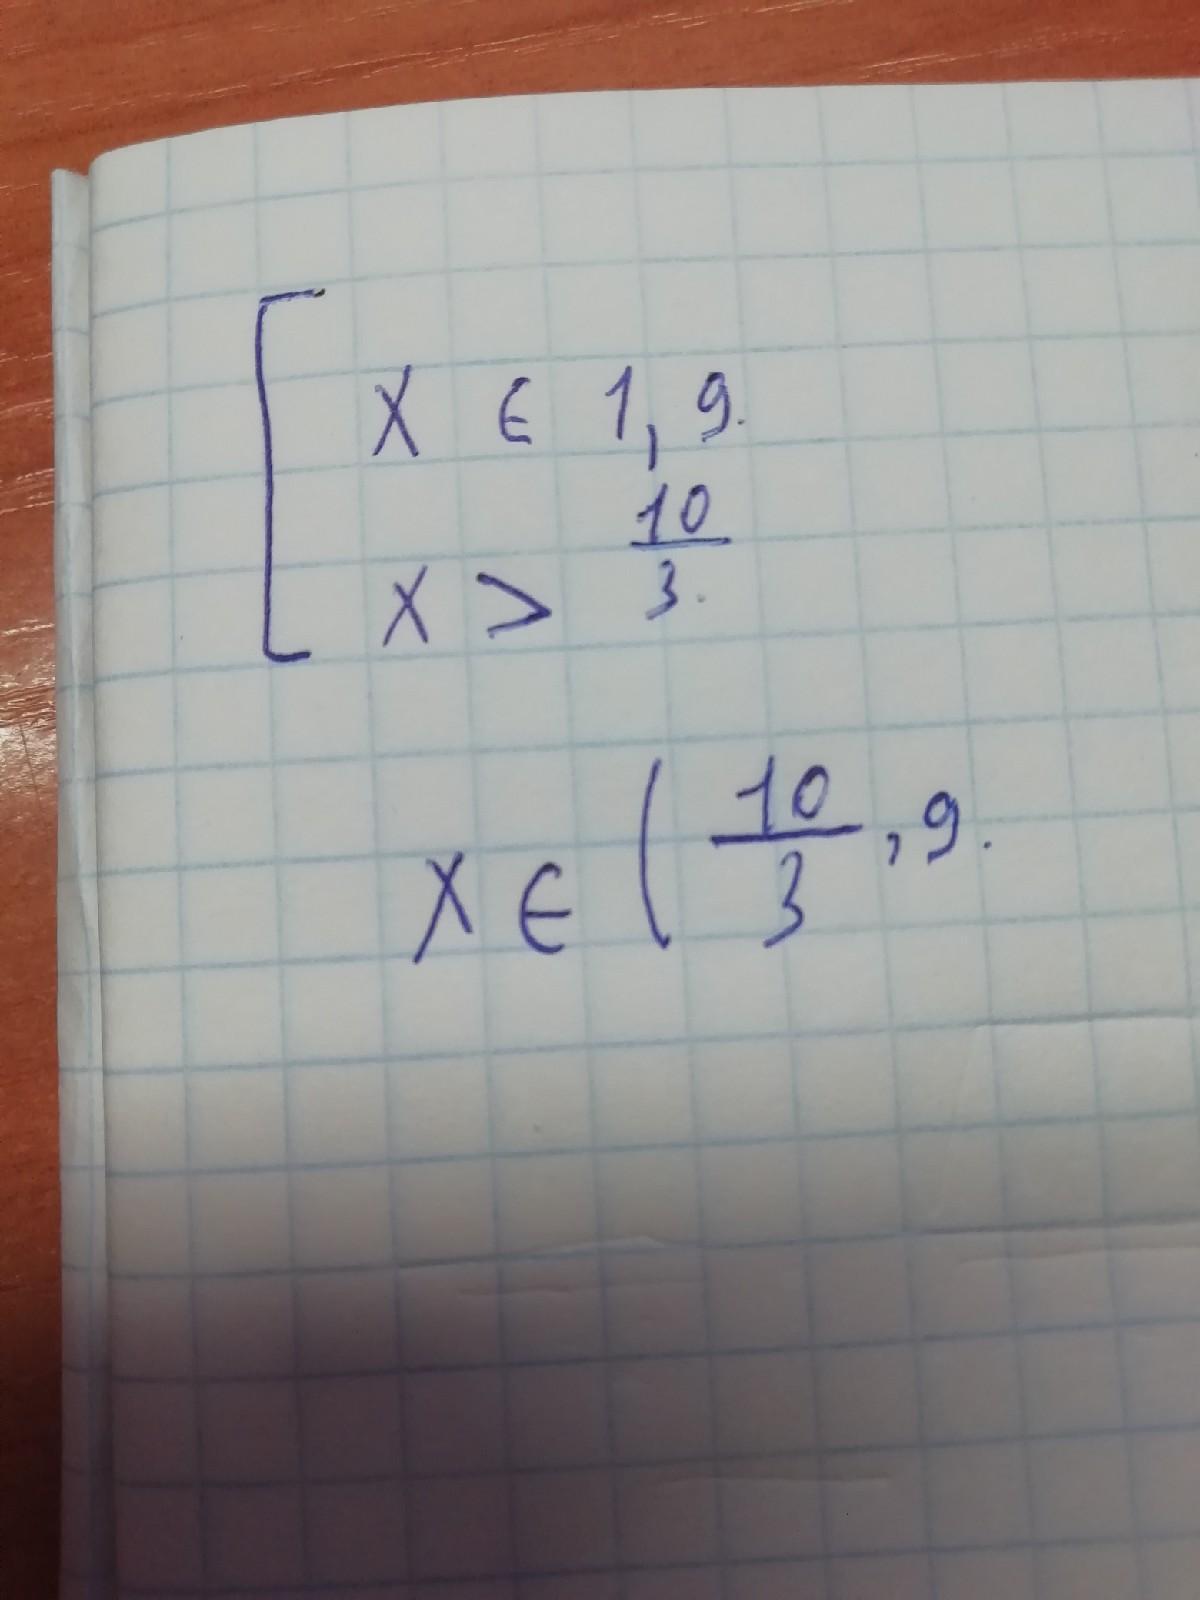 [ x ∈ 1, 9.
x > 10/3.
x ∈ ( 10/3, 9.